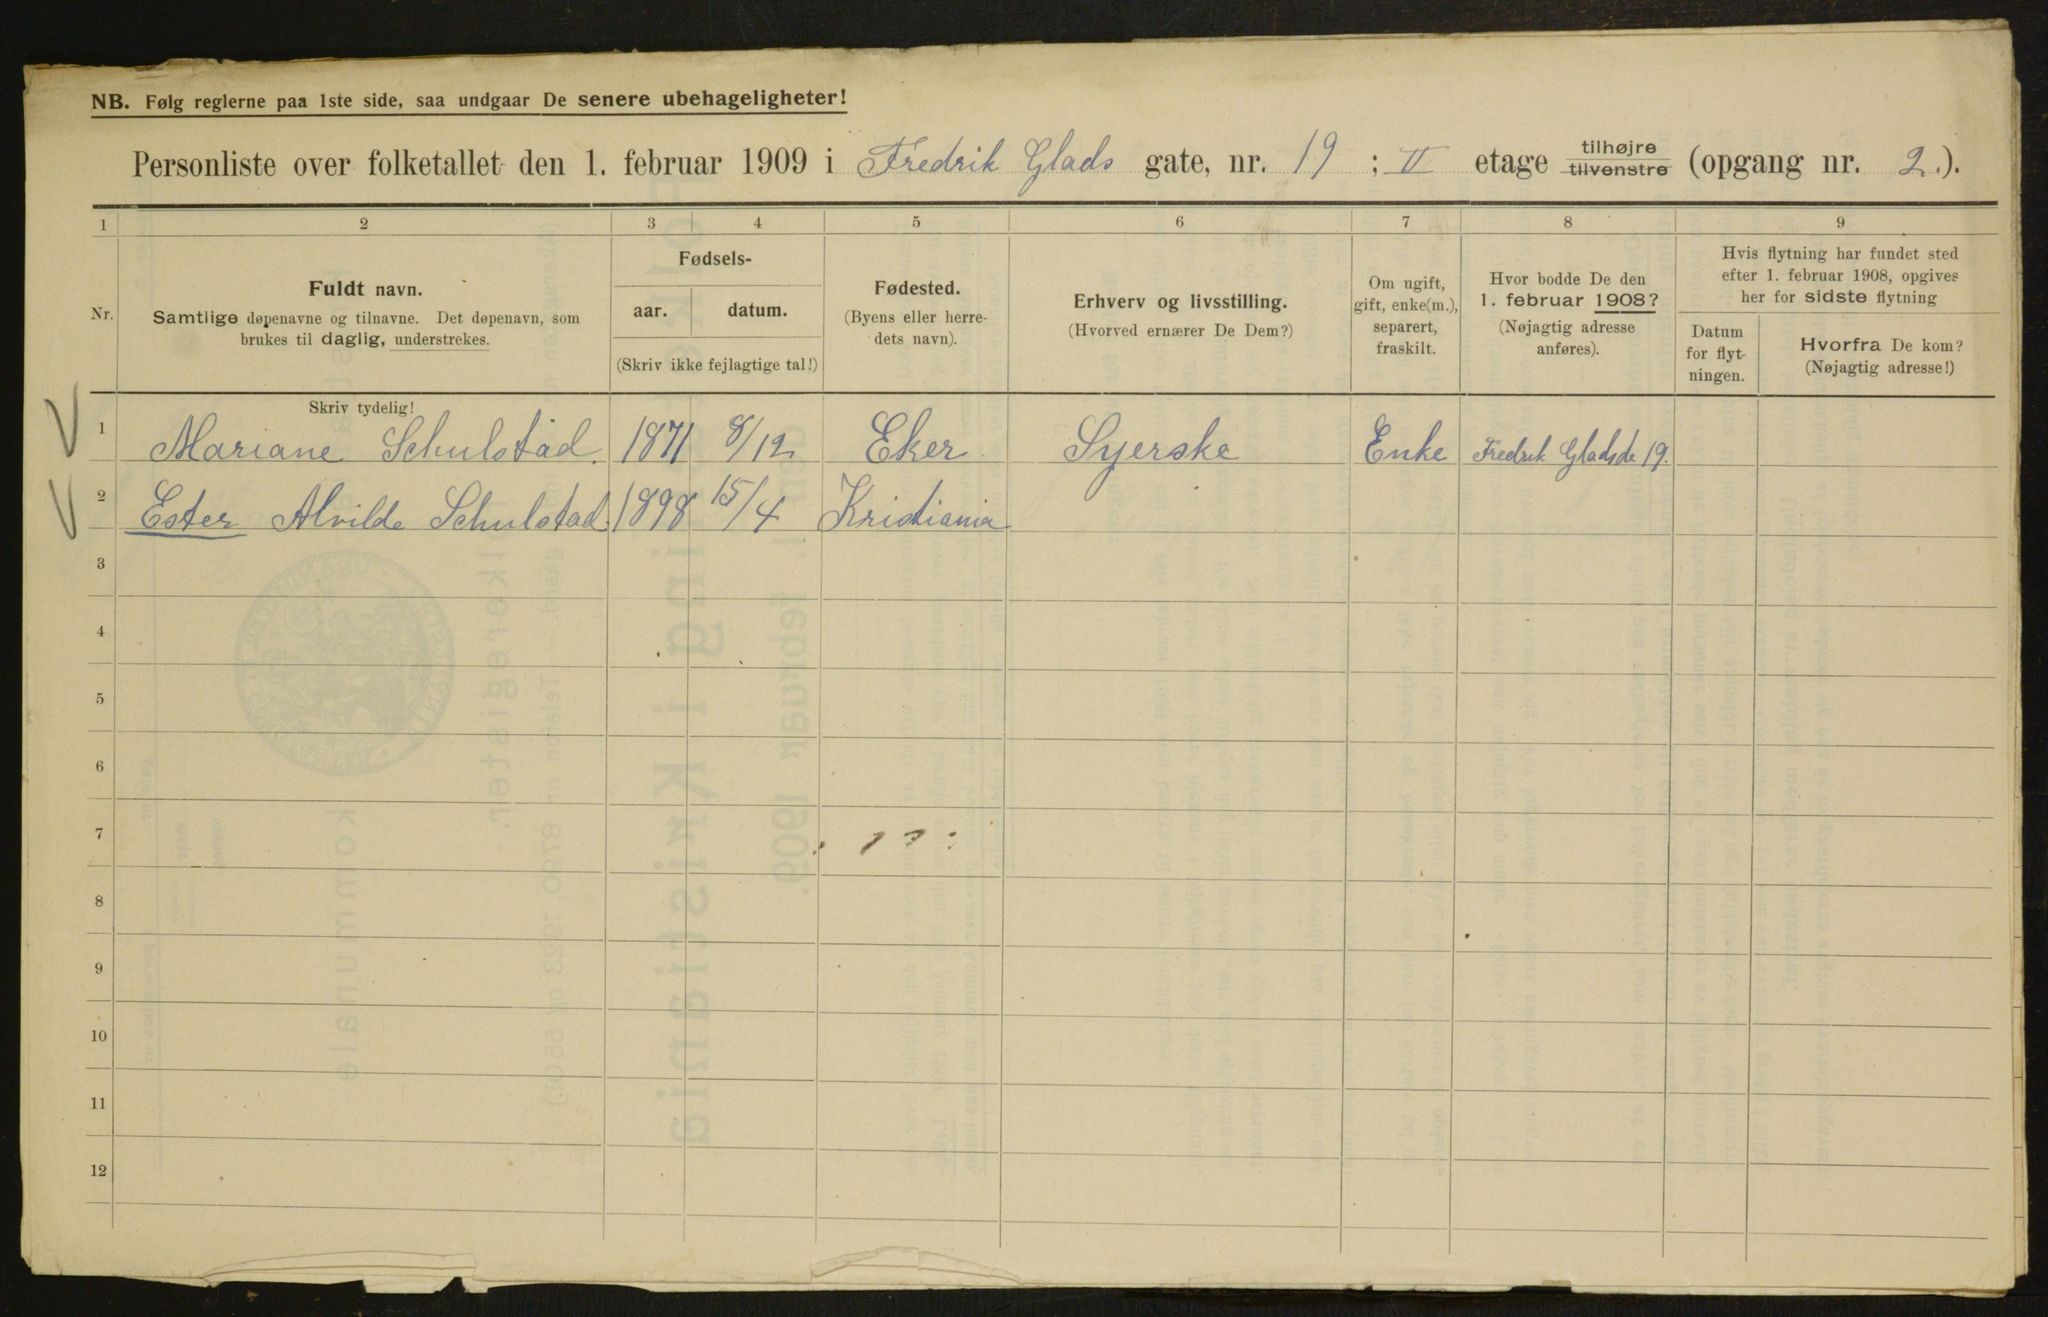 NB. Følg reglerne paa 1ste side, saa undgaar De senere ubehageligheter!
Personliste over folketallet den 1. februar 1909 i Fredrik Glads gate, nr. 19 ; II etage tilhøjre tilvenstre (opgang nr. 2.).
1 2 3 4 5 6 7 8 9
Nr.
Fuldt navn.
Samtlige døpenavne og tilnavne. Det døpenavn, som
brukes til daglig, understrekes.
Fødsels-
aar. datum.
(Skriv ikke fejlagtige tal!)
Fødested.
(Byens eller herre-
dets navn).
Erhverv og livsstilling.
(Hvorved ernærer De Dem?)
Om ugift,
gift, enke(m.),
separert,
fraskilt.
Hvor bodde De den
1. februar 1908?
(Nøjagtig adresse
anføres).
Hvis flytning har fundet sted
efter 1. februar 1908, opgives
her for sidste flytning
Datum
for flyt-
ningen.
Hvorfra De kom?
(Nøjagtig adresse!)
Skriv tydelig!
1 Mariane Schulstad. 1871 8/12 Eker Syerske Enke Fredrik Gladsde 19.
2 Ester Alvilde Schulstad 1898 15/4 Kristiania
3
4
5
6
7
8
9
10
11
12